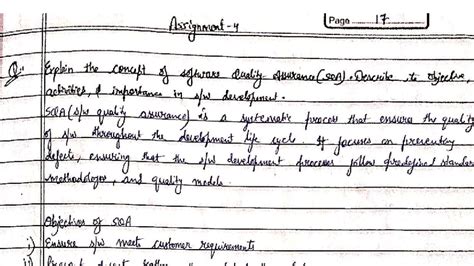 Assignment-4
Page 17
Q. Explain the concept of software Quality Assurance (SQA). Describe its objective,
activities, & importance in s/w development.
SQA (s/w quality assurance) is a systematic process that ensures the quality
of s/w throughout the development life cycle. It focuses on preventing
defects, ensuring that the s/w development processes follow predefined standard
methodologies, and quality models.
Objectives of SQA
i) Ensure s/w meets customer requirements
Prevent defects rather